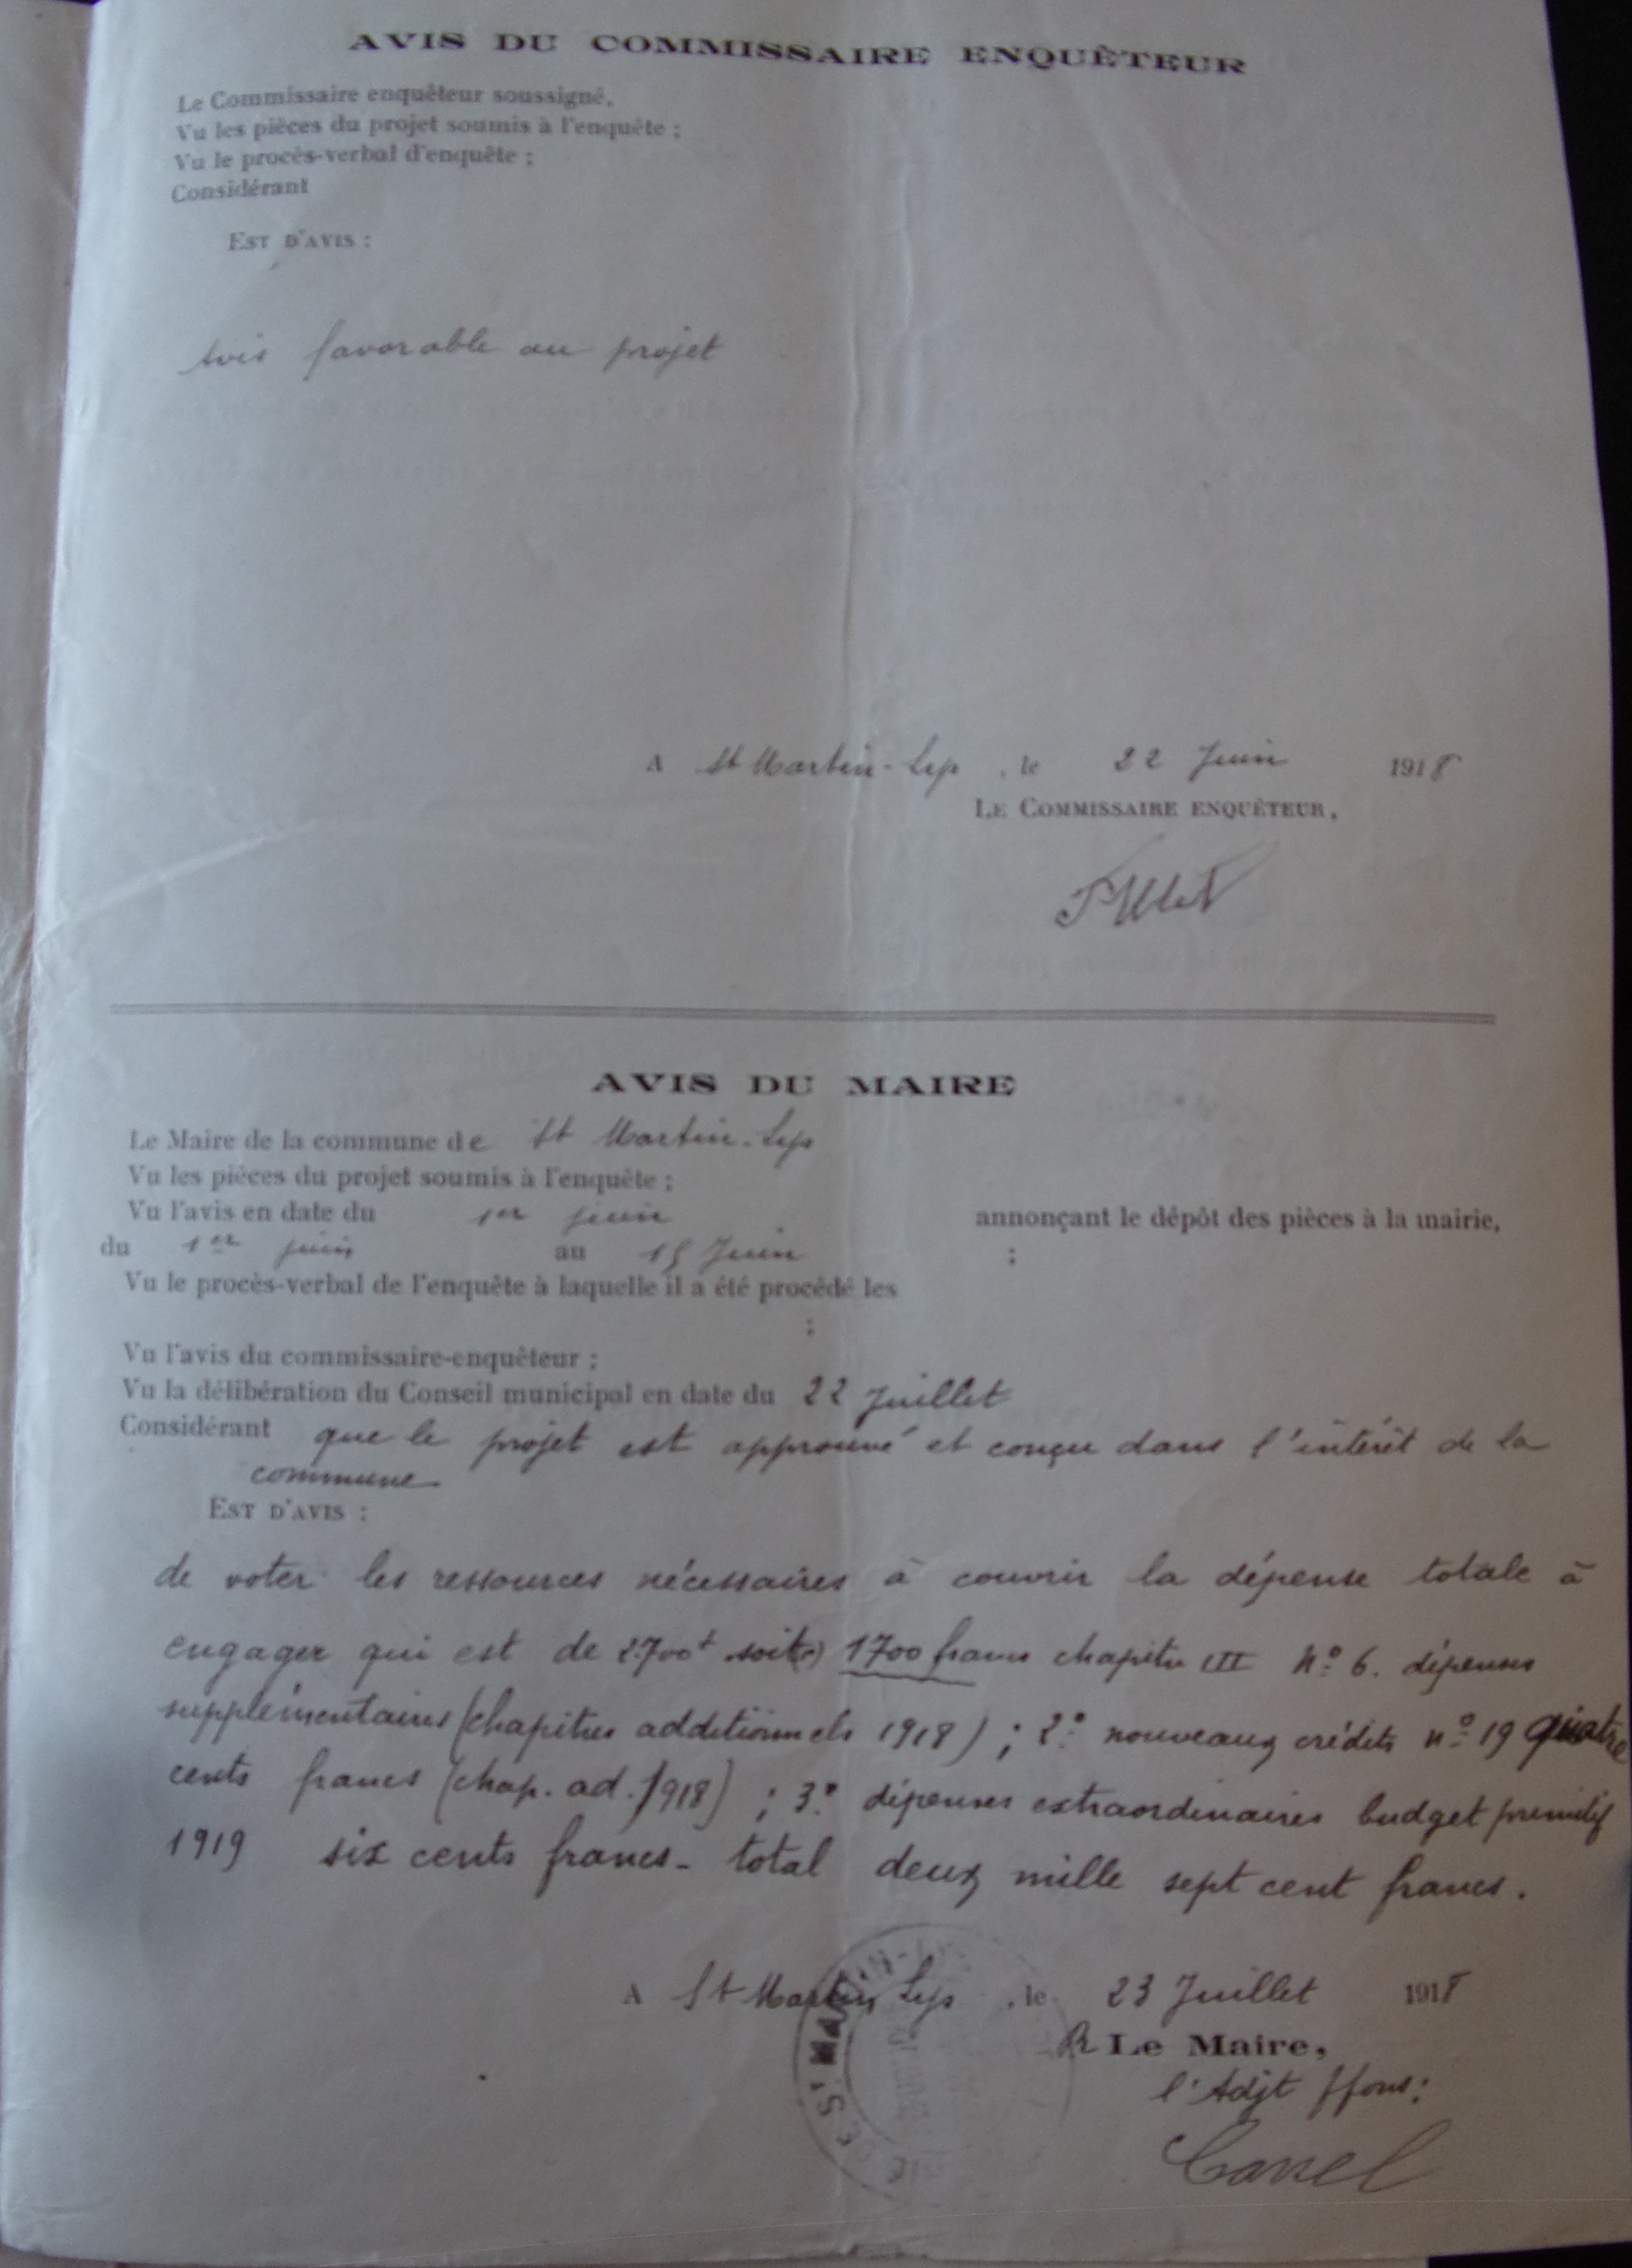 AVIS DU COMMISSAIRE ENQUÊTEUR
Le Commissaire enquêteur soussigné,
Vu les pièces du projet soumis à l'enquête ;
Vu le procès-verbal d'enquête ;
Considérant
EST D'AVIS :
Avis favorable au projet
A St Martin-Lys , le 22 Juin 1918
LE COMMISSAIRE ENQUÊTEUR,
AVIS DU MAIRE
Le Maire de la commune de St Martin-Lys
Vu les pièces du projet soumis à l'enquête ;
Vu l'avis en date du 1er juin annonçant le dépôt des pièces à la mairie,
du 1er juin au 15 Juin ;
Vu le procès-verbal de l'enquête à laquelle il a été procédé les
;
Vu l'avis du commissaire-enquêteur ;
Vu la délibération du Conseil municipal en date du 22 Juillet
Considérant que le projet est approuvé et conçu dans l'intérêt de la
commune
EST D'AVIS :
de voter les ressources nécessaires à couvrir la dépense totale à
engager qui est de 2700f soit 1700 francs chapitre III No 6. dépenses
supplémentaires (chapitres additionnels 1918) ; 2o nouveaux crédits no 19 quatre
cents francs (chap. ad. 1918) ; 3o dépenses extraordinaires budget primitif
1919 six cents francs - total deux mille sept cent francs.
A St Martin Lys , le 23 Juillet 1918
Le Maire,
l'Adjt ffons: